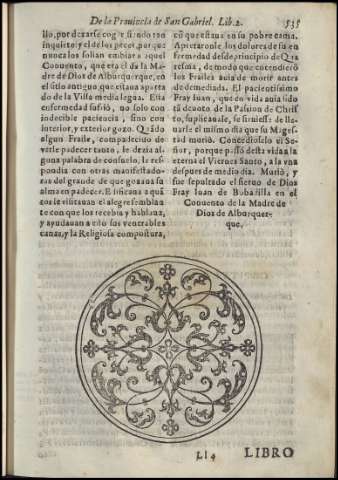 De la Prouincia de San Gabriel. Lib. 2. 535
llo, por dexarse coger siendo tan
inquieto; y el de los peces, porque
nunca los solian embiar a aquel
Conuento, que era el de la Ma-
dre de Dios de Alburquerque, en
el sitio antiguo, que estaua aparta-
do de la Villa media legua. Esta
enfermedad sufriò, no solo con
indecible paciencia, sino con
interior, y exterior gozo. Quãdo
algun Fraile, compadecido de
verle padecer tanto, le dezia al-
guna palabra de consuelo, le res-
pondia con otras manifestado-
ras del grande de que gozaua su
alma en padecer. Estaua a quã
tos le visitauan el alegre sembla-
te con que los recebia y hablaua,
y ayudauan a esto sus venerables
canas, y la Religiosa compostura,
cõ que estaua en su pobre cama.
Apretaronle los dolores de su en
fermedad desde principio de Qua
resma, de modo que entendierõ
los Frailes auia de morir antes
de demediada. El pacientissimo
Fray Iuan, que en vida auia sido
tã deuoto de la Passion de Chris-
to, suplicauale, se siruiesse de lle-
uarle el mismo dia que su Mages-
tad murio. Concediòselo el Se-
ñor, porque passò desta vida a la
eterna el Viernes Santo, a la vna
despues de medio dia. Muriò, y
fue sepultado el sieruo de Dios
Fray Iuan de Bobadilla en el
Conuento de la Madre de
Dios de Alburquer-
que.
Ll4 LIBRO